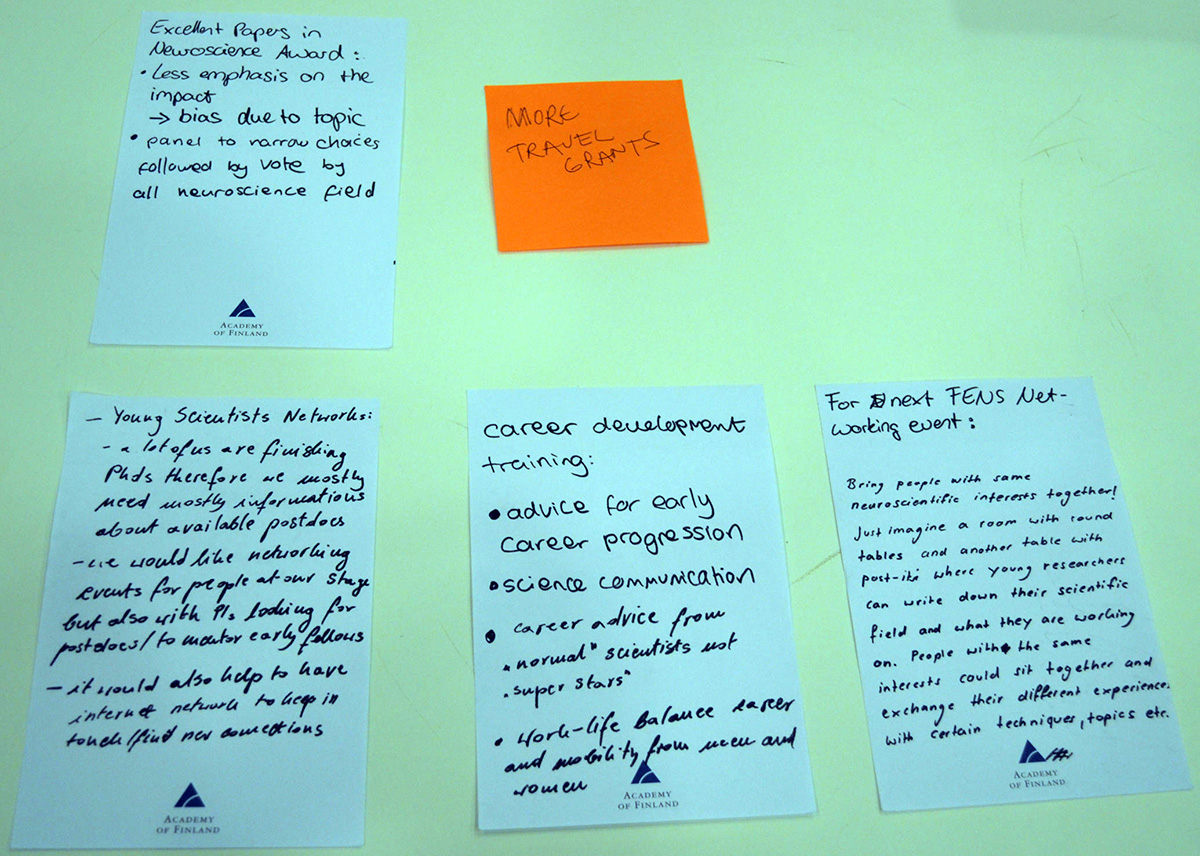 Excellent Papers in
Neuroscience Award:
• Less emphasis on the
impact
→ bias due to topic
• panel to narrow choices
followed by vote by
all neuroscience field
ACADEMY
OF FINLAND
MORE
TRAVEL
GRANTS
– Young Scientists Networks:
- a lot of us are finishing
Phds therefore we mostly
need mostly informations
about available postdocs
- we would like networking
events for people at our stage
but also with PIs looking for
postdocs/to mentor early fellows
– it would also help to have
internet network to keep in
touch/find new connections
ACADEMY
OF FINLAND
career development
training:
• advice for early
career progression
• science communication
• career advice from
"normal" scientists not
"super stars"
• work-life balance career
and mobility from men and
women
ACADEMY
OF FINLAND
For next FENS Net-
working event:
Bring people with same
neuroscientific interests together!
Just imagine a room with round
tables and another table with
post-its where young researchers
can write down their scientific
field and what they are working
on. People with the same
interests could sit together and
exchange their different experience
with certain techniques, topics etc.
ACADEMY
OF FINLAND